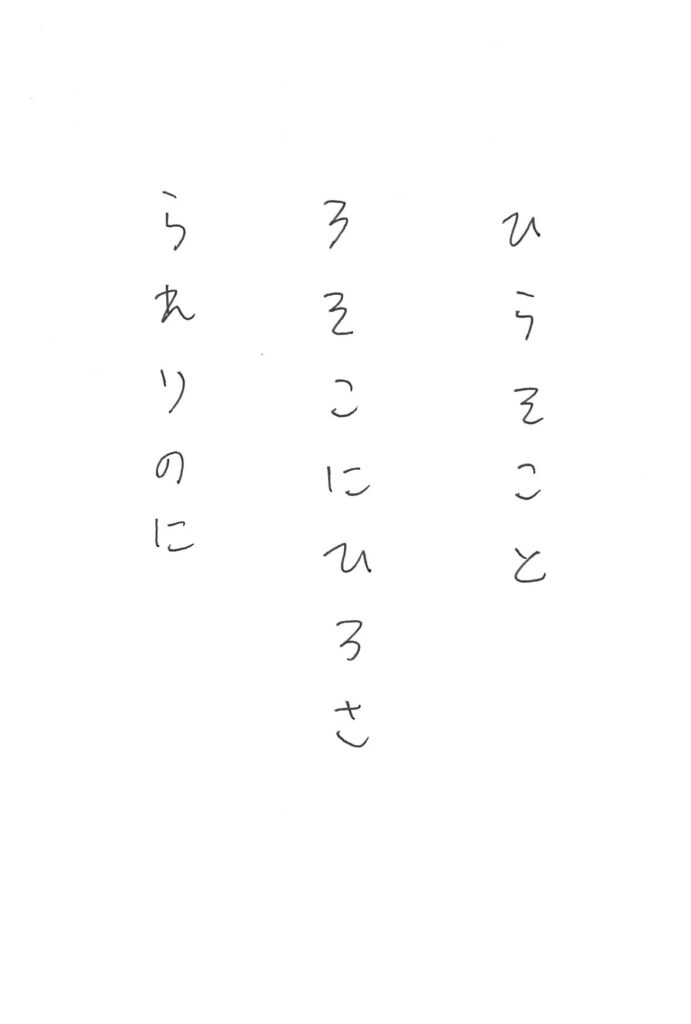 ひらそこと
ろそこにひろさ
られりのに